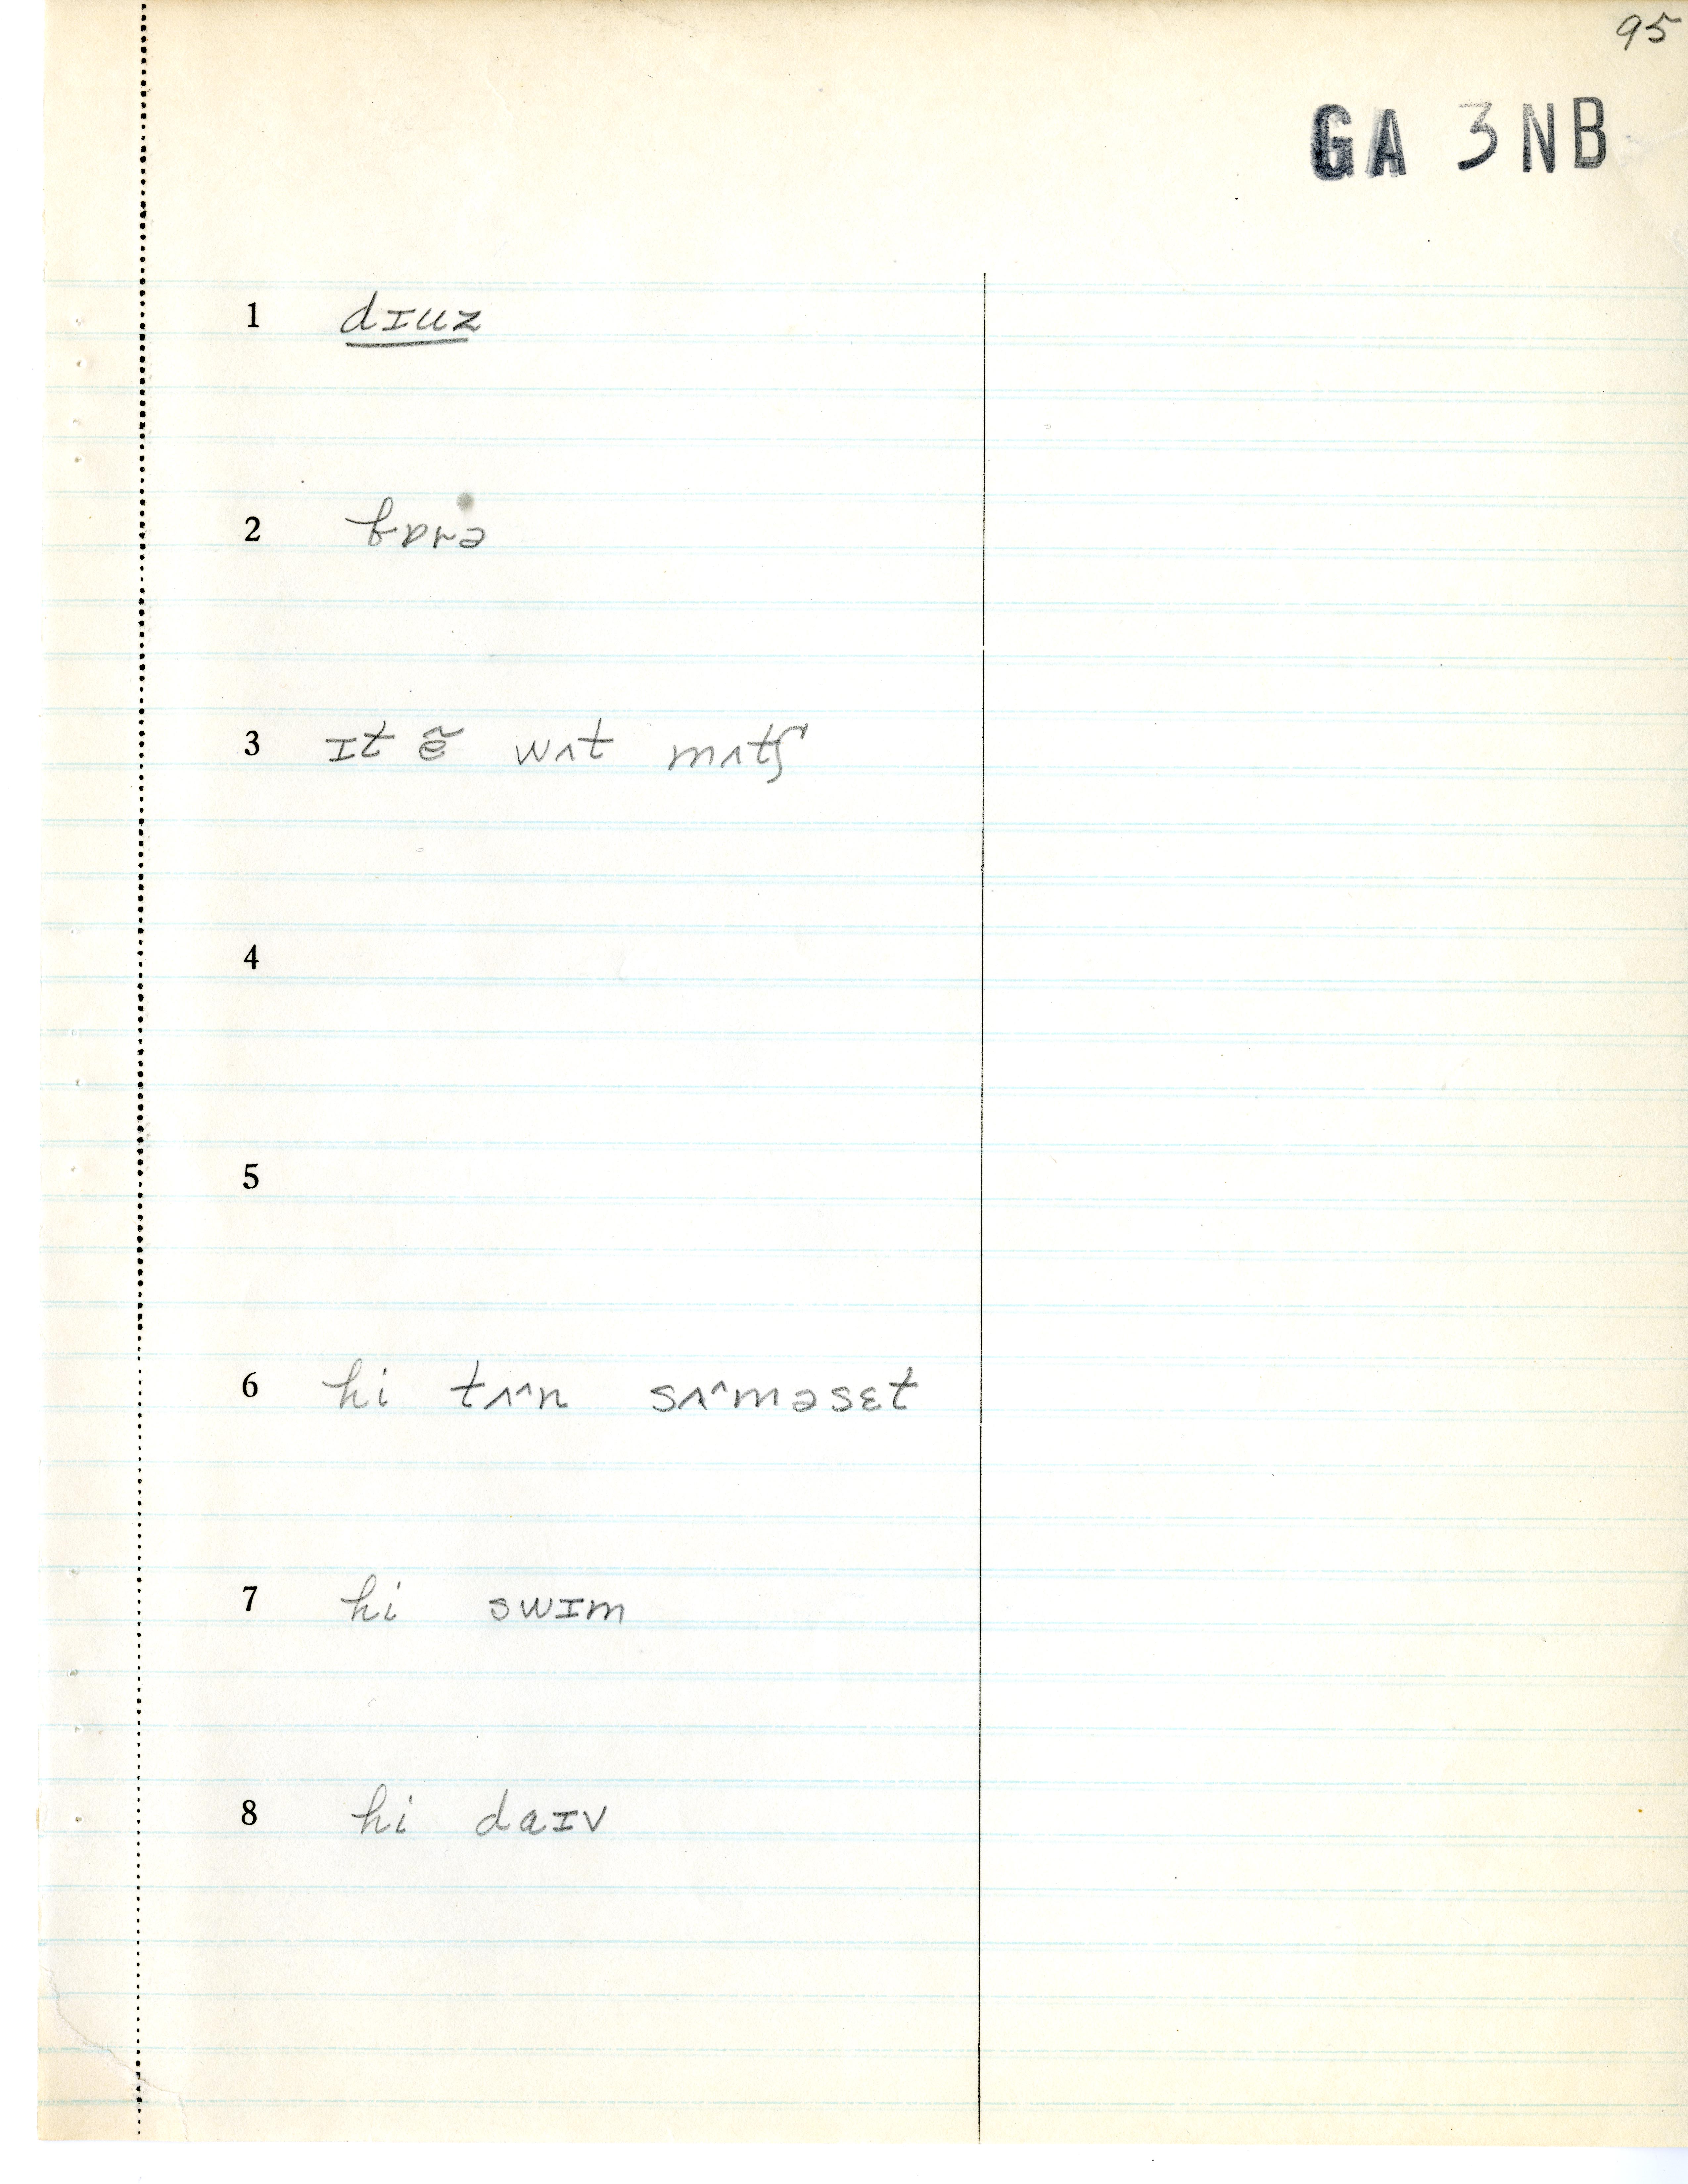 95
GA 3 NB
1 dɪuz
2 fɒrə
3 ɪt ẽ wʌt mʌtʃ
4
5
6 hi tʌ^n sʌ^məsɛt
7 hi swɪm
8 hi daɪv